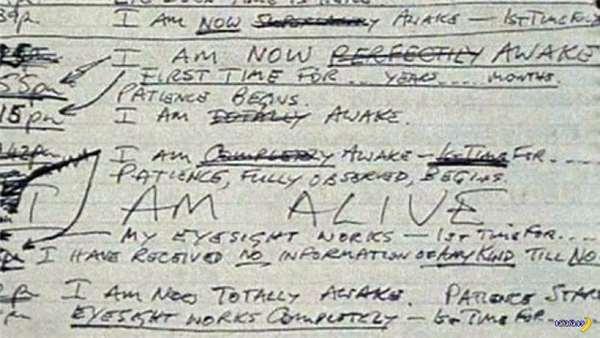 I AM NOW AWAKE — 1ST TIME FOR
I AM NOW PERFECTLY AWAKE
55pm FIRST TIME FOR ... YEARS .... MONTHS.
PATIENCE BEGINS.
15pm I AM TOTALLY AWAKE.
I AM COMPLETELY AWAKE — 1ST TIME FOR....
PATIENCE, FULLY OBSERVED, BEGINS
I AM ALIVE
MY EYESIGHT WORKS — 1ST TIME FOR....
I HAVE RECEIVED NO INFORMATION OF ANY KIND TILL NO
I AM NOW TOTALLY AWAKE. PATIENCE STAR
EYESIGHT WORKS COMPLETELY — 1ST TIME FOR..